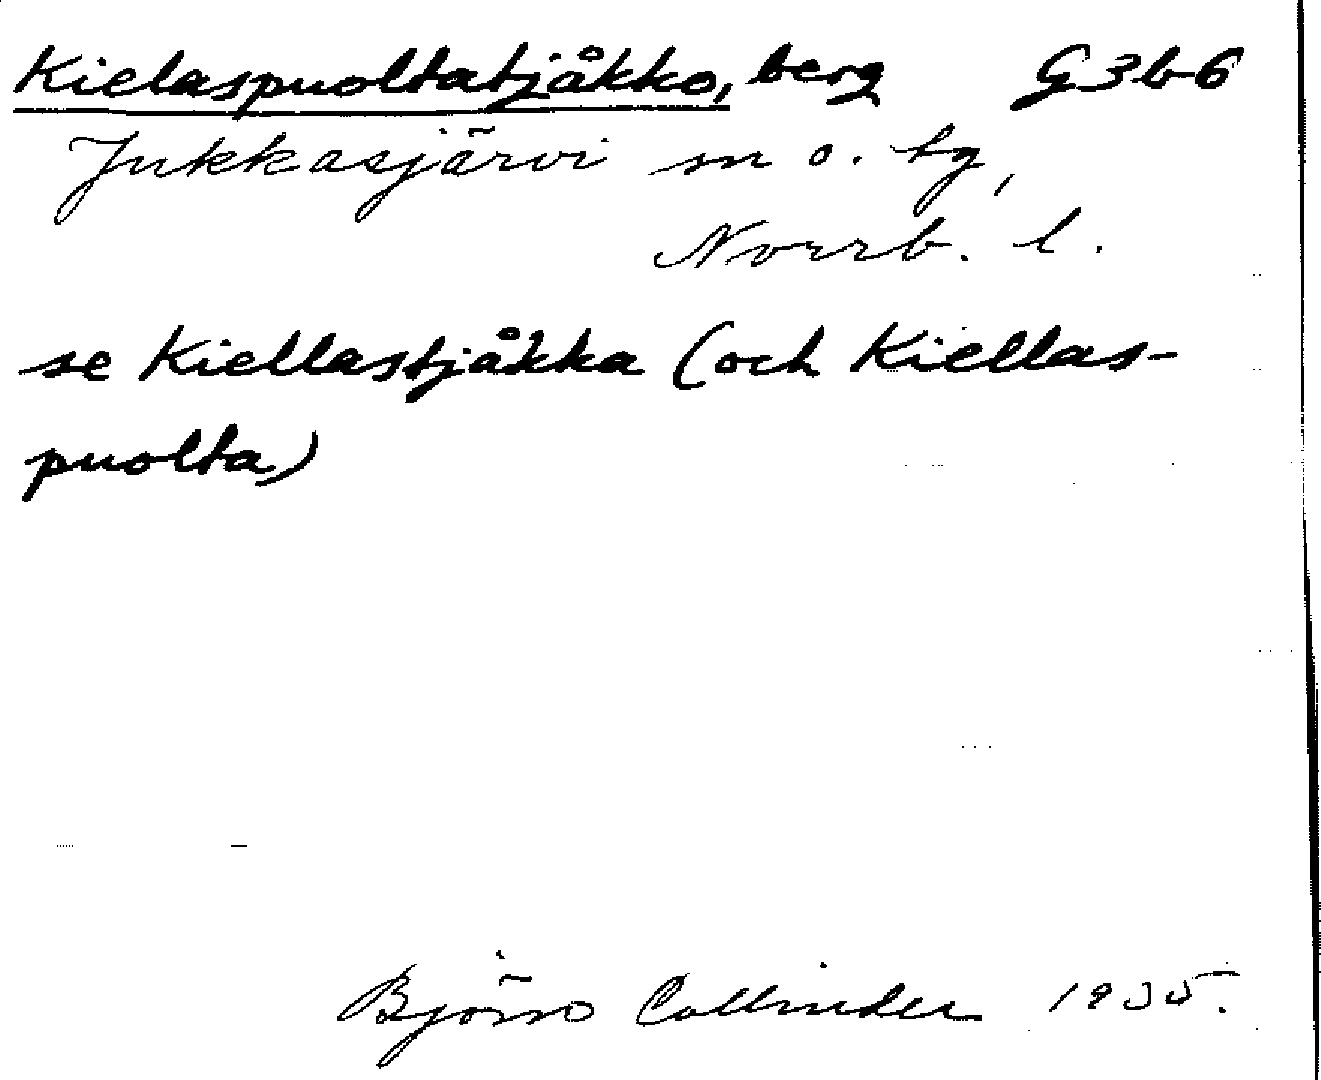 Kielaspuoltatjåkko, berg G3b6
Jukkasjärvi sn o. tg,
Norrb. l.
se Kiellastjåkka (och Kiellas-
puolta)
Björn Collinder 1935.